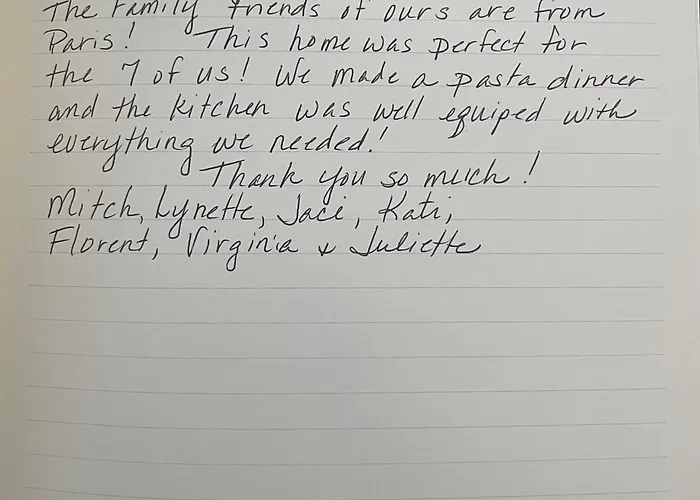 The Family friends of ours are from
Paris! This home was perfect for
the 7 of us! We made a pasta dinner
and the kitchen was well equiped with
everything we needed!
Thank you so much!
Mitch, Lynette, Jaci, Kati,
Florent, Virginia & Juliette